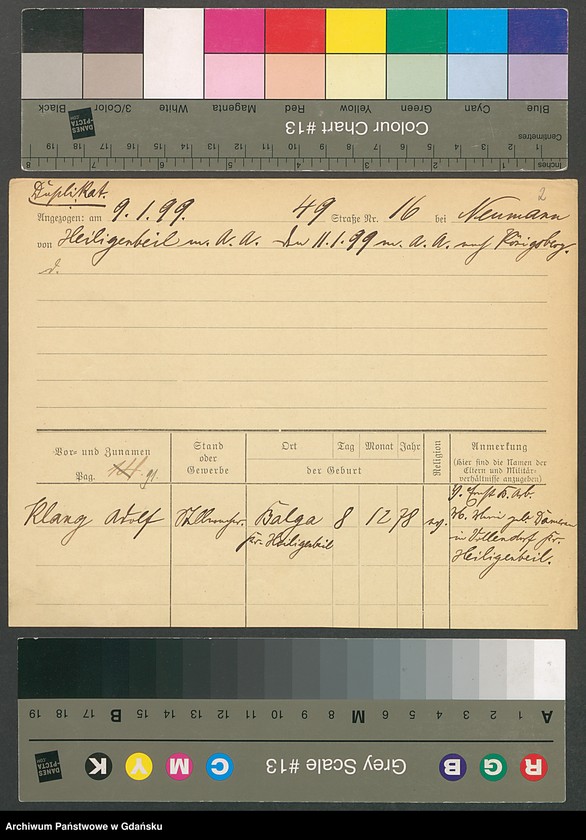 Blue Cyan Green Yellow Red Magenta White 3/Color Black
Colour Chart #13
DANES-PICTA.COM
Centimetres
1 2 3 4 5 6 7 8 9 10 11 12 13 14 15 16 17 18 19
Inches 1 2 3 4 5 6 7 8
Duplikat.
2
Angezogen: am 9.1.99. 49 Straße Nr. 16 bei Neumann
von Heiligenbeil m. A. A. den 11.1.99 m. A. A. nach Königsberg.
Vor- und Zunamen
Pag. 91.
Stand oder Gewerbe
Ort Tag Monat Jahr
der Geburt
Religion
Anmerkung
(Hier sind die Namen der Eltern und Militär-verhältnisse anzugeben)
Klang Adolf
Balga 8 12 78 ev.
Kr. Heiligenbeil
Heiligenbeil.
A 1 2 3 4 5 6 M 8 9 10 11 12 13 14 15 B 16 17 18 19
R G B Grey Scale #13 C M Y K
DANES-PICTA.COM
Archiwum Państwowe w Gdańsku